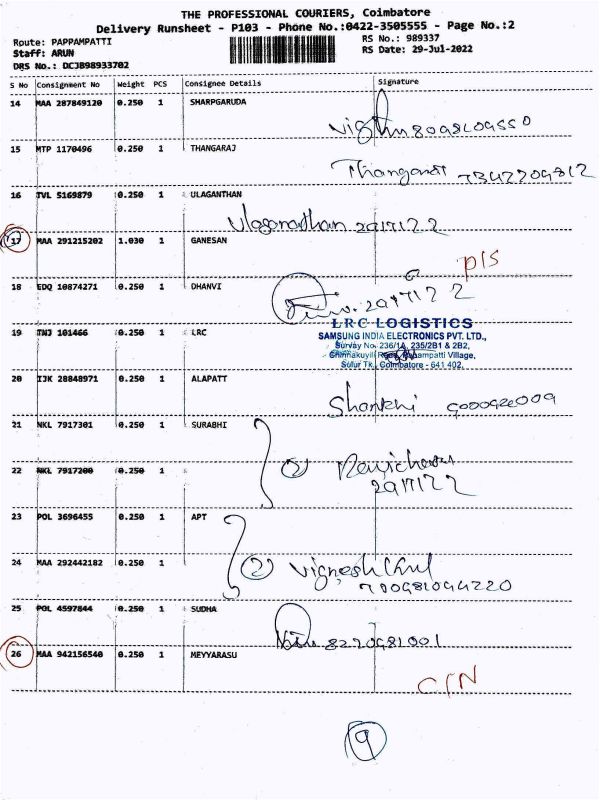 THE PROFESSIONAL COURIERS, Coimbatore
Delivery Runsheet - P103 - Phone No.:0422-3505555 - Page No.:2
Route: PAPPAMPATTI RS No.: 989337
Staff: ARUN RS Date: 29-Jul-2022
DRS No.: DCJB98933702
S No Consignment No Weight PCS Consignee Details Signature
14 MAA 287849120 0.250 1 SHARPGARUDA
15 MTP 1170496 0.250 1 THANGARAJ
Thangaraj
16 TVL 5169879 0.250 1 ULAGANTHAN
Ulaganathan 29/7/22
17 MAA 291215202 1.030 1 GANESAN
D/S
18 EDQ 10874271 0.250 1 DHANVI
29/7/22
LRC LOGISTICS
19 TNJ 101466 0.250 1 LRC
SAMSUNG INDIA ELECTRONICS PVT. LTD.,
Survay No. 236/1A, 235/2B1 & 2B2,
Chinnakuyili Road, Pappampatti Village,
Sulur Tk., Coimbatore - 641 402.
20 IJK 28848971 0.250 1 ALAPATT
Shanthi
21 NKL 7917301 0.250 1 SURABHI
22 NKL 7917200 0.250 1
2
29/7/22
23 POL 3696455 0.250 1 APT
24 MAA 292442182 0.250 1
2 Vignesh
25 POL 4597844 0.250 1 SUDHA
8220981001
26 MAA 942156540 0.250 1 MEYYARASU
C/N
9